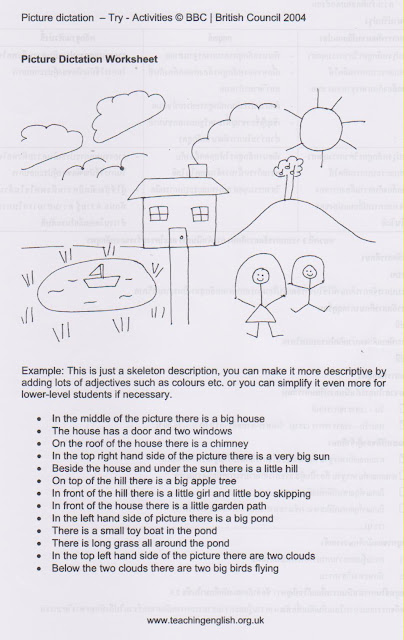 Picture dictation – Try - Activities © BBC | British Council 2004
Picture Dictation Worksheet
Example: This is just a skeleton description, you can make it more descriptive by
adding lots of adjectives such as colours etc. or you can simplify it even more for
lower-level students if necessary.
• In the middle of the picture there is a big house
• The house has a door and two windows
• On the roof of the house there is a chimney
• In the top right hand side of the picture there is a very big sun
• Beside the house and under the sun there is a little hill
• On top of the hill there is a big apple tree
• In front of the hill there is a little girl and little boy skipping
• In front of the house there is a little garden path
• In the left hand side of picture there is a big pond
• There is a small toy boat in the pond
• There is long grass all around the pond
• In the top left hand side of the picture there are two clouds
• Below the two clouds there are two big birds flying
www.teachingenglish.org.uk